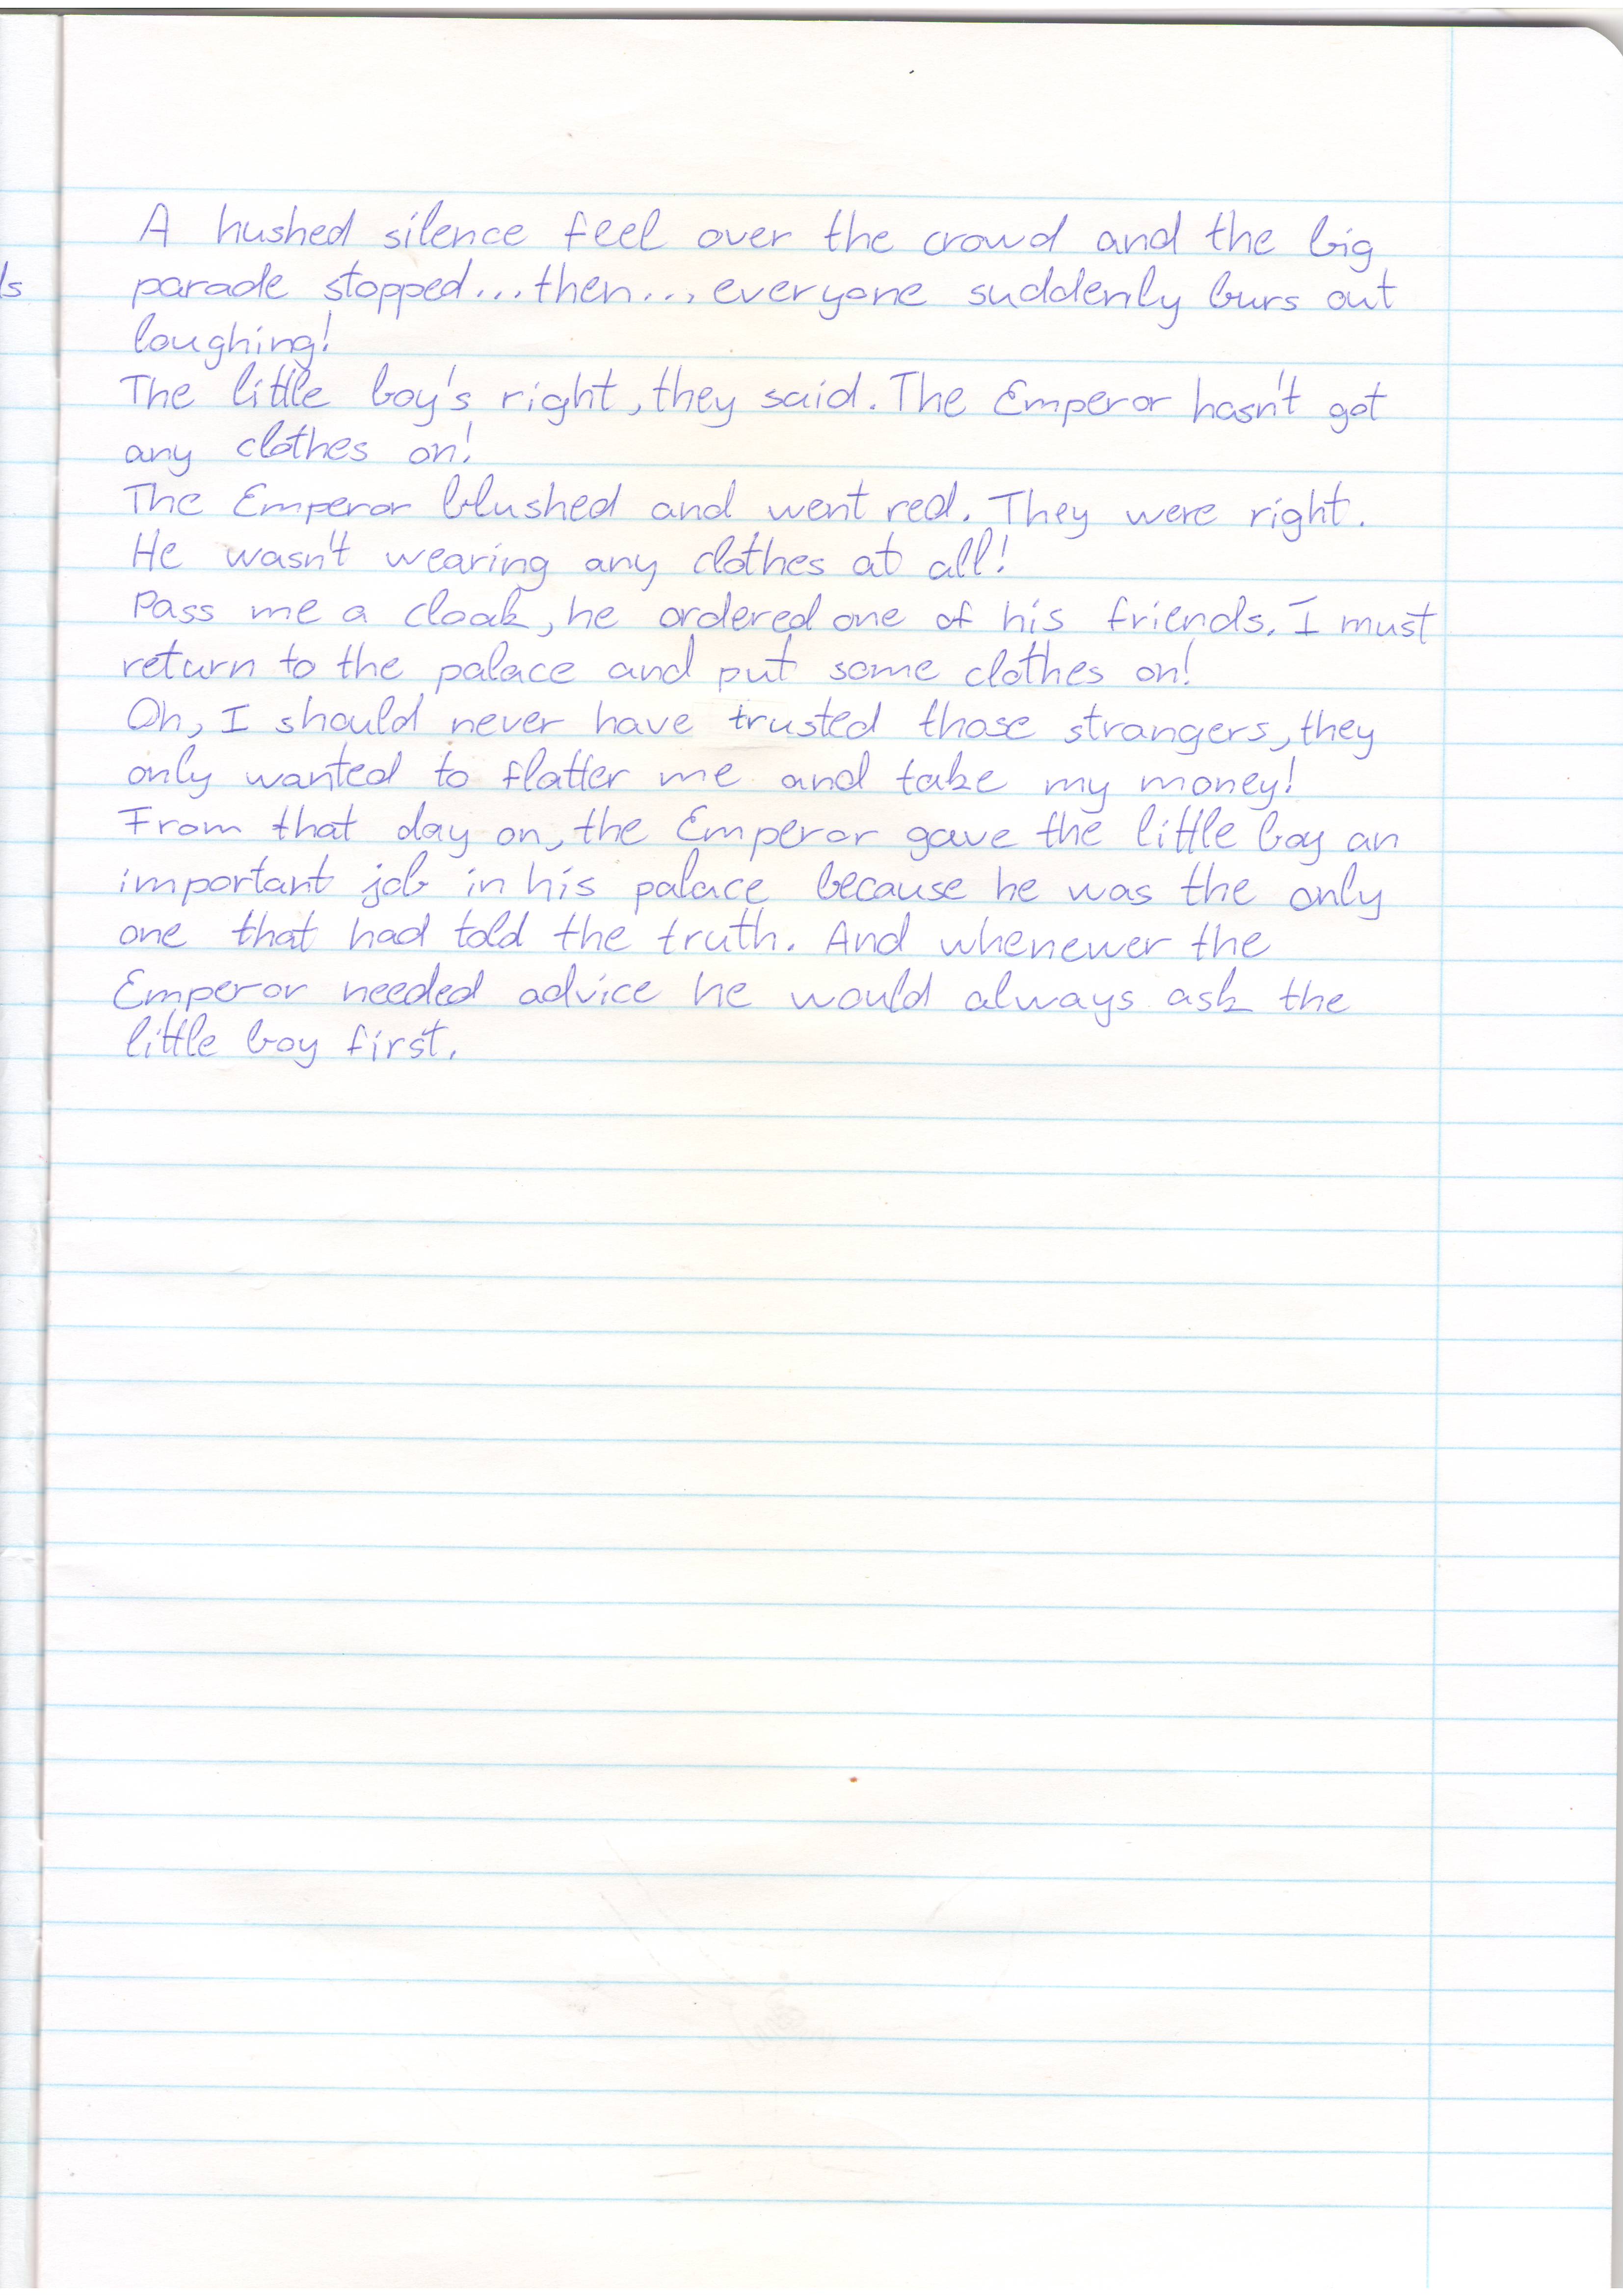 A hushed silence feel over the crowd and the big
parade stopped...then... everyone suddenly burs out
loughing!
The little boy's right, they said. The Emperor hasn't got
any clothes on!
The Emperor blushed and went red. They were right.
He wasn't wearing any clothes at all!
Pass me a cloak, he ordered one of his friends. I must
return to the palace and put some clothes on!
Oh, I should never have trusted those strangers, they
only wanted to flatter me and take my money!
From that day on, the Emperor gave the little boy an
important job in his palace because he was the only
one that had told the truth. And whenewer the
Emperor needed advice he would always ask the
little boy first.